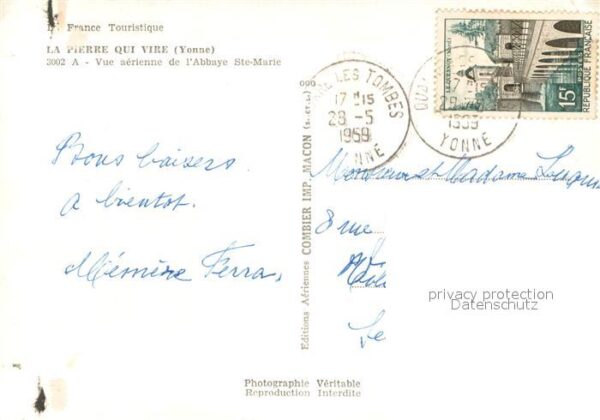 La France Touristique
LA PIERRE QUI VIRE (Yonne)
3002 A - Vue aérienne de l'Abbaye Ste-Marie
Bons baisers
a bientot.
Mémère Ferra
Editions Aériennes COMBIER IMP. MACON
LES TOMBES
17 H 15
28-5
1959
YONNE
1959
YONNE
15F
POSTES
REPUBLIQUE FRANÇAISE
Monsieur et Madame
8 rue
Le
privacy protection
Datenschutz
Photographie Véritable
Reproduction Interdite